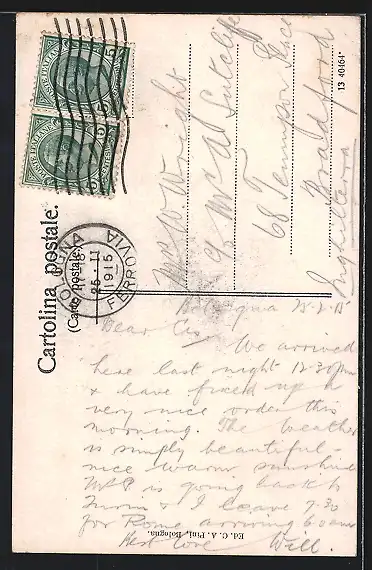 Cartolina postale.
(Carte postale)
POSTE ITALIANE
POSTE ITALIANE
FERROVIA
1915
Wright
Mc W Sutcliffe
68
Place
Bradford
Inghilterra
13 40464
Bologna 25-2-15
Dear
We arrived
here last night 12-30 pm
& have fixed up a
very nice order this
morning. The weather
is simply beautiful -
nice warm sunshine
is going back to
Turin & I leave 9-30
for Rome arriving 6 a m
Best love Will.
Ed. C. A. Pini, Bologna.